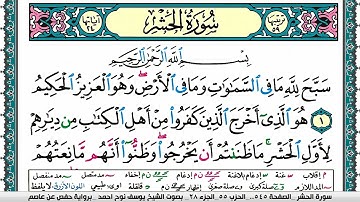 ترتيبها ٥٩ سُورَةُ الْحَشْرِ آياتها ٢٤
بِسْمِ اللَّهِ الرَّحْمَٰنِ الرَّحِيمِ
سَبَّحَ لِلَّهِ مَا فِي السَّمَاوَاتِ وَمَا فِي الْأَرْضِ وَهُوَ الْعَزِيزُ الْحَكِيمُ
١ هُوَ الَّذِي أَخْرَجَ الَّذِينَ كَفَرُوا مِنْ أَهْلِ الْكِتَابِ مِن دِيَارِهِمْ
لِأَوَّلِ الْحَشْرِ مَا ظَنَنتُمْ أَن يَخْرُجُوا وَظَنُّوا أَنَّهُم مَّانِعَتُهُمْ
سورة الحشر . الصفحة ٥٤٥ . الحزب ٥٥ . الجزء ٢٨ . بصوت الشيخ يوسف نوح أحمد . برواية حفص عن عاصم